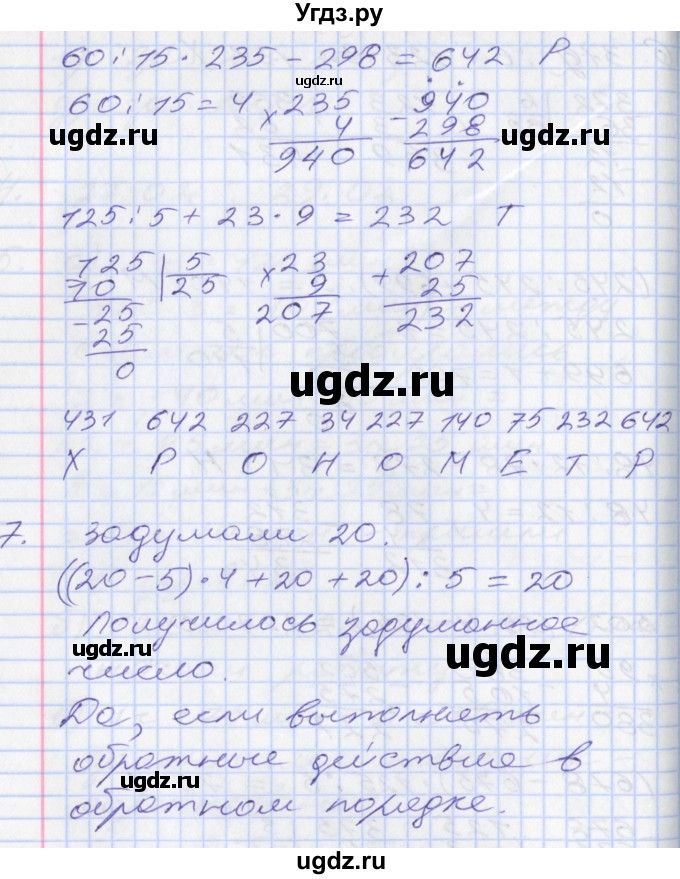 Угдз.ру
60 : 15 · 235 − 298 = 642 Р
ugdz.ru
60 : 15 = 4 × 235 − 940
ugdz.ru ugdz.ru
4 298
940 642
125 : 5 + 23 · 9 = 232 Т
125 | 5 × 23 + 207
10 25 9 25
− 25 207 232
25
0
ugdz.ru
431 642 227 34 227 140 75 232 642
Х Р О Н О М Е Т Р
7. Задумали 20.
((20 − 5) · 4 + 20 + 20) : 5 = 20
Получилось задуманное
ugdz.ru ugdz.ru
число.
Да, если выполнять
обратные действия в
ugdz.ru
обратном порядке.
ugdz.ru